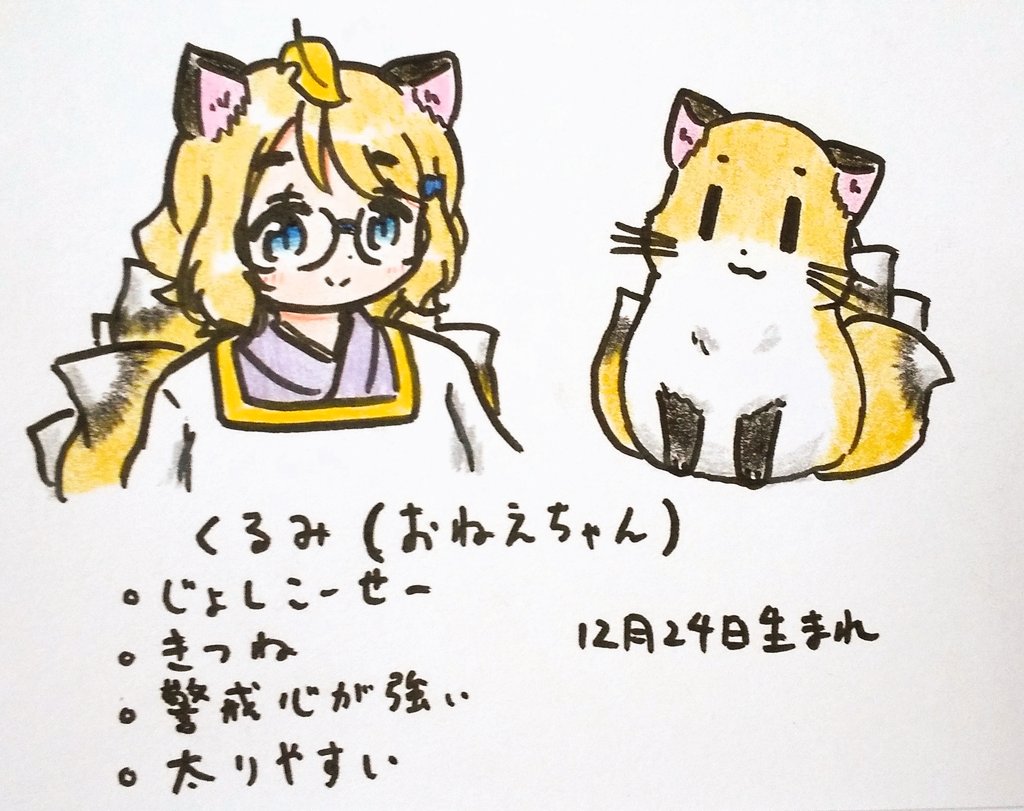 くるみ(おねえちゃん)
。じょしこーせー
。きつね
。警戒心が強い
。太りやすい
12月24日生まれ